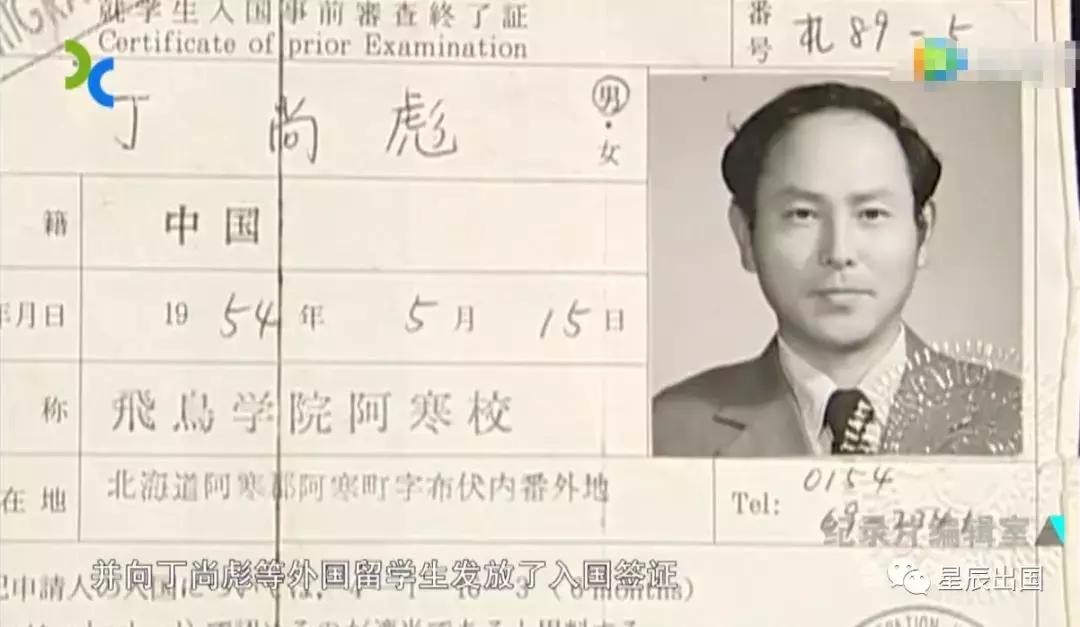 就学生入国事前審査終了証
Certificate of prior Examination
番号
札 89 - 5
丁 尚 彪
男・女
籍
中国
年月日
19 54 年 5 月 15 日
称
飛鳥学院阿寒校
在地
北海道阿寒郡阿寒町字布伏内番外地
Tel:
0154
纪录片编辑室
并向丁尚彪等外国留学生发放了入国签证
months)
星辰出国